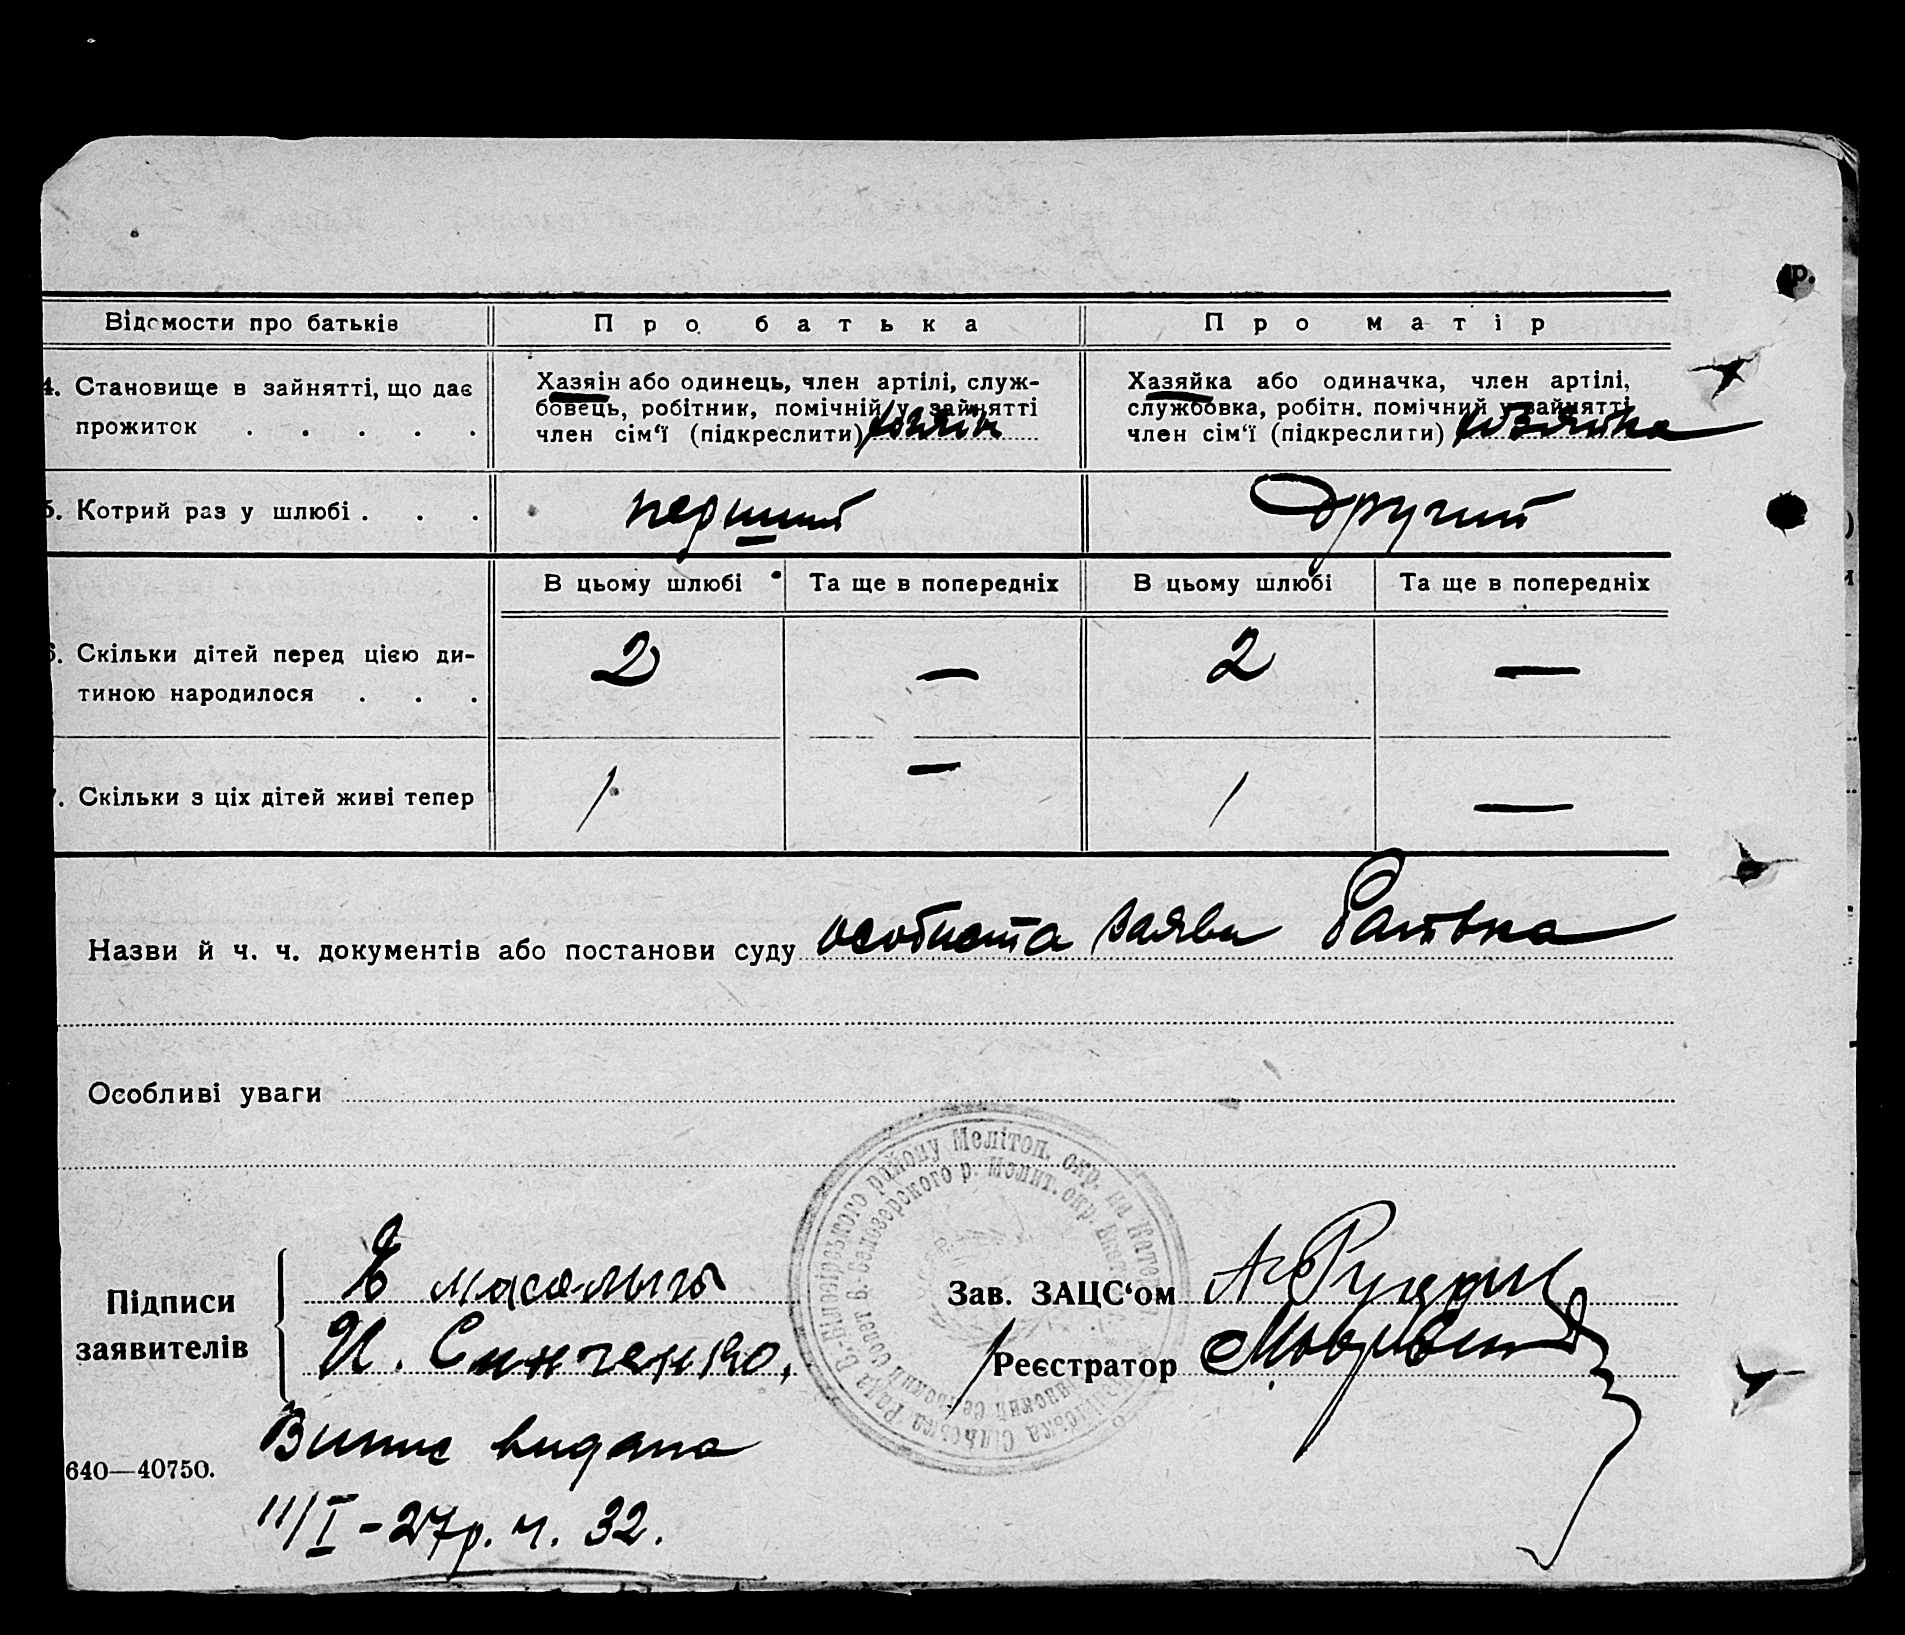 р.
Відомости про батьків Про батька Про матір
4. Становище в зайнятті, що дає прожиток . . . . .
Хазяін або одинець, член артілі, служ-
бовець, робітник, помічний у зайнятті
член сім‘ї (підкреслити) хазяін
Хазяйка або одиначка, член артілі,
службовка, робітн. помічний у зайнятті
член сім‘ї (підкреслити) хазяйка
5. Котрий раз у шлюбі . . . перший Другий
В цьому шлюбі Та ще в попередніх В цьому шлюбі Та ще в попередніх
6. Скільки дітей перед цією ди-
тиною народилося . . . 2 — 2 —
7. Скільки з ціх дітей живі тепер 1 — 1 —
Назви й ч. ч. документів або постанови суду особиста заява батька
Особливі уваги
В.-Білозірського району Меліто
п. окр. на
В. Белозерского р. Мелит. окр.
Підписи
заявителів
И. Синченко,
Зав. ЗАЦС‘ом
Реєстратор
Випис видана
640—40750.
11/I – 27р. ч. 32.